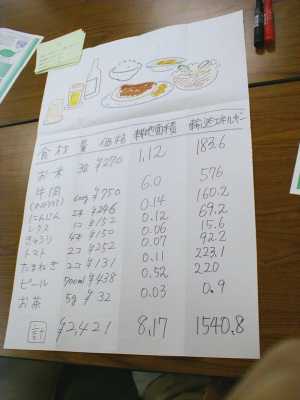 食材 量 価格 耕地面積 輸送エネルギー
お米 3合 ¥270 1.12 183.6
牛肉 600g ¥750 6.0 576
にんじん 2本 ¥296 0.14 160.2
レタス 1コ ¥152 0.12 69.2
きゅうり 4本 ¥150 0.06 15.6
トマト 2コ ¥252 0.07 92.2
たまねぎ 2コ ¥131 0.11 223.1
ビール 700ml ¥438 0.52 220
お茶 5g ¥32 0.03 0.9
計 ¥2,421 8.17 1540.8